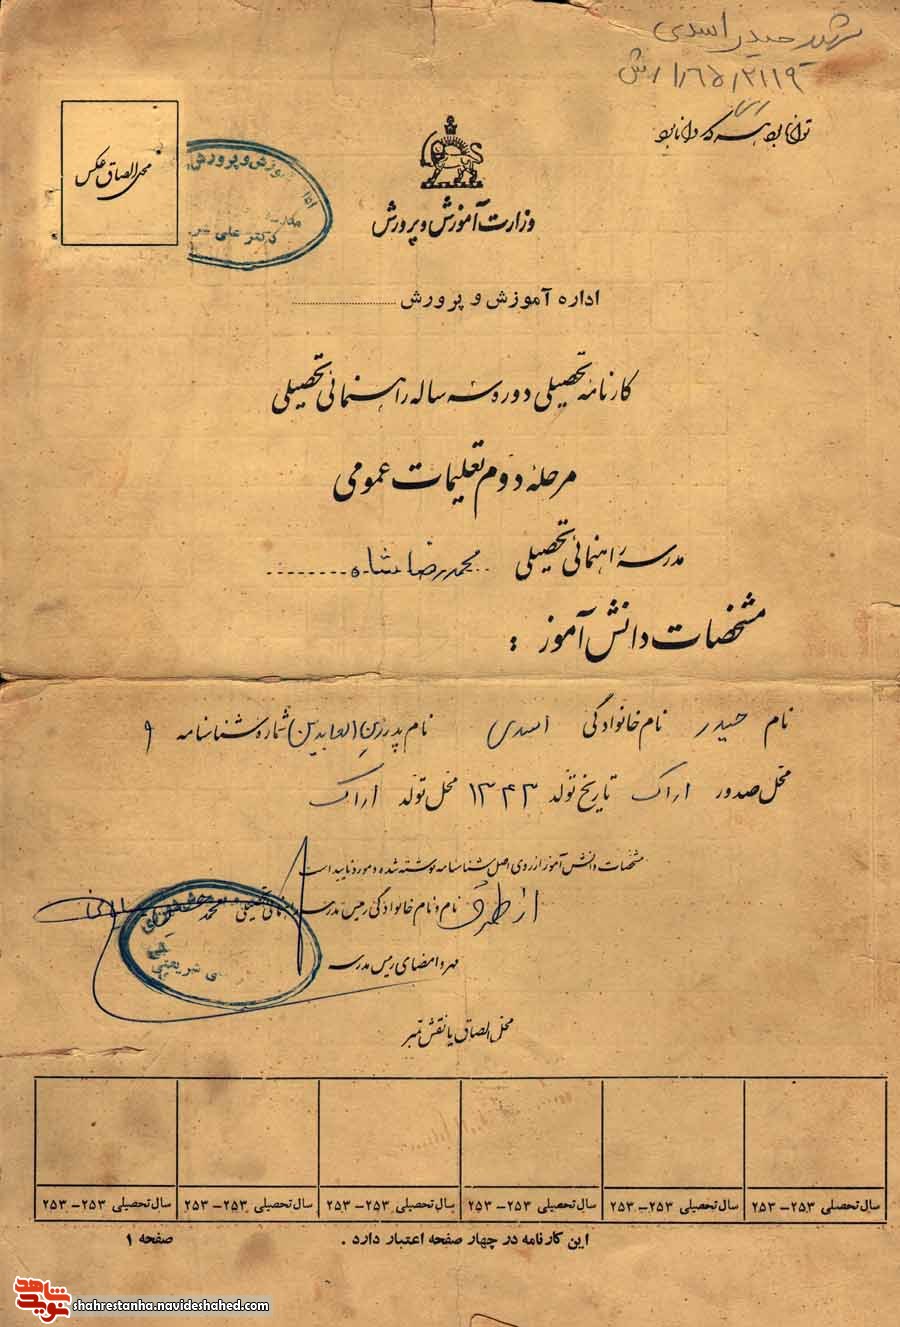 شهید حیدر اسدی
توانا بود هر که دانا بود
محل الصاق عکس
وزارت آموزش و پرورش
اداره آموزش و پرورش
کارنامه تحصیلی دوره سه ساله راهنمائی تحصیلی
مرحله دوم تعلیمات عمومی
مدرسه راهنمائی تحصیلی محمدرضا شاه
مشخصات دانش آموز :
نام حیدر نام خانوادگی اسدی نام پدر زین العابدین شماره شناسنامه ۹
محل صدور اراک تاریخ تولد ۱۳۴۳ محل تولد اراک
مشخصات دانش آموز از روی اصل شناسنامه نوشته شده و مورد تایید است
نام و نام خانوادگی رئیس مدرسه راهنمائی تحصیلی
از طرف
مهر و امضای رئیس مدرسه
محل الصاق یا نقش تمبر
سال تحصیلی ۲۵۳ـ ۲۵۳ سال تحصیلی ۲۵۳ـ ۲۵۳ سال تحصیلی ۲۵۳ـ ۲۵۳ سال تحصیلی ۲۵۳ـ ۲۵۳ سال تحصیلی ۲۵۳ـ ۲۵۳ سال تحصیلی ۲۵۳ـ ۲۵۳
این کارنامه در چهار صفحه اعتبار دارد . صفحه ۱
نوید شاهد shahrestanha.navideshahed.com